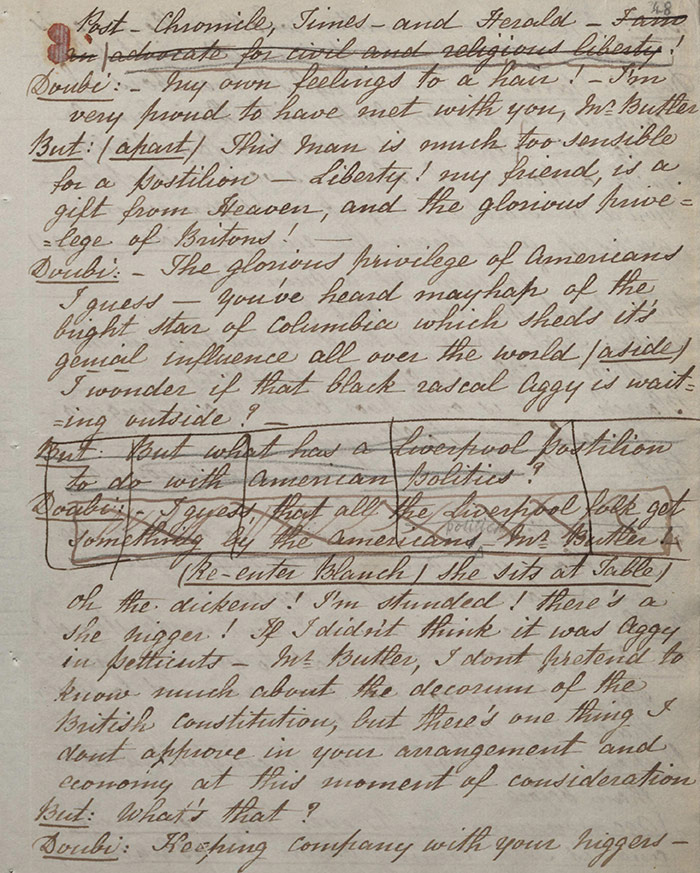 48
Post - Chronicle, Times - and Herald - I am
an advocate for civil and religious liberty!
Doubi: - My own feelings to a hair! - I'm
very proud to have met with you, Mr Butler
But: (apart) This Man is much too sensible
for a postilion - Liberty! my friend, is a
gift from Heaven, and the glorious prive=
=lege of Britons! -
Doubi: - The glorious privilege of Americans
I guess - you've heard mayhap of the
bright star of Columbia which sheds it's
genial influence all over the world (aside)
I wonder if that black rascal Aggy is wait-
=ing outside? -
But: But what has a Liverpool Postilion
to do with American Politics?
Doubi: - I guess that all the Liverpool folk get
political
something by the Americans, Mr Butler -
(Re-enter Blanch) she sits at Table)
oh the dickens! I'm stunded! there's a
she nigger! If I didn't think it was Aggy
in petticuts - Mr Butler, I dont pretend to
know much about the decorum of the
British constitution, but there's one thing I
dont approve in your arrangement and
economy at this moment of consideration
But: What's that?
Doubi: Keeping company with your niggers -